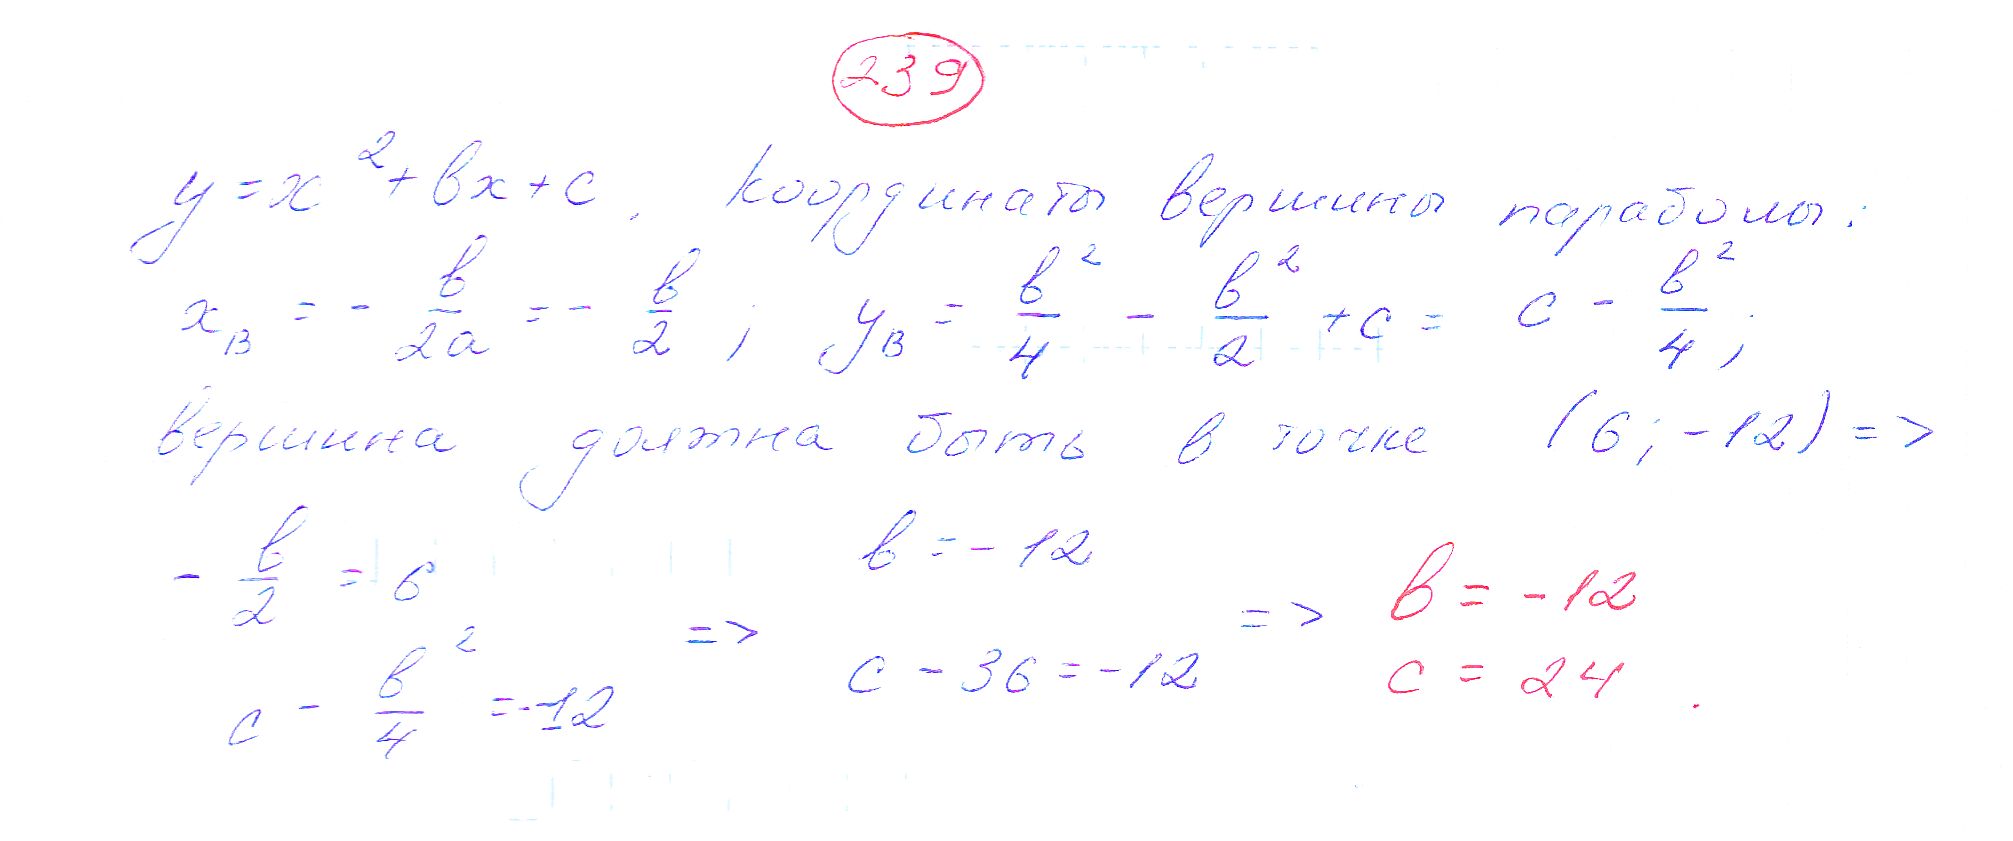 239
y = x² + bx + c. Координаты вершины параболы:
x_B = - b/2a = - b/2 ; y_B = b²/4 - b²/2 + c = c - b²/4 ;
вершина должна быть в точке (6; -12) =>
- b/2 = 6 b = - 12 b = - 12
=> =>
c - b²/4 = -12 c - 36 = -12 c = 24 .